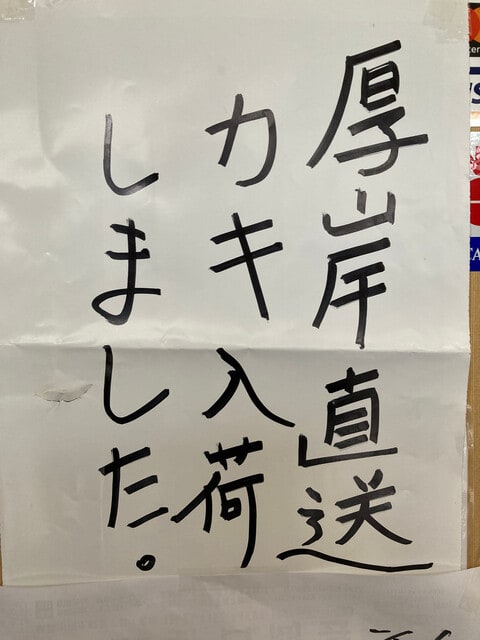 厚岸直送
カキ入荷
しました。